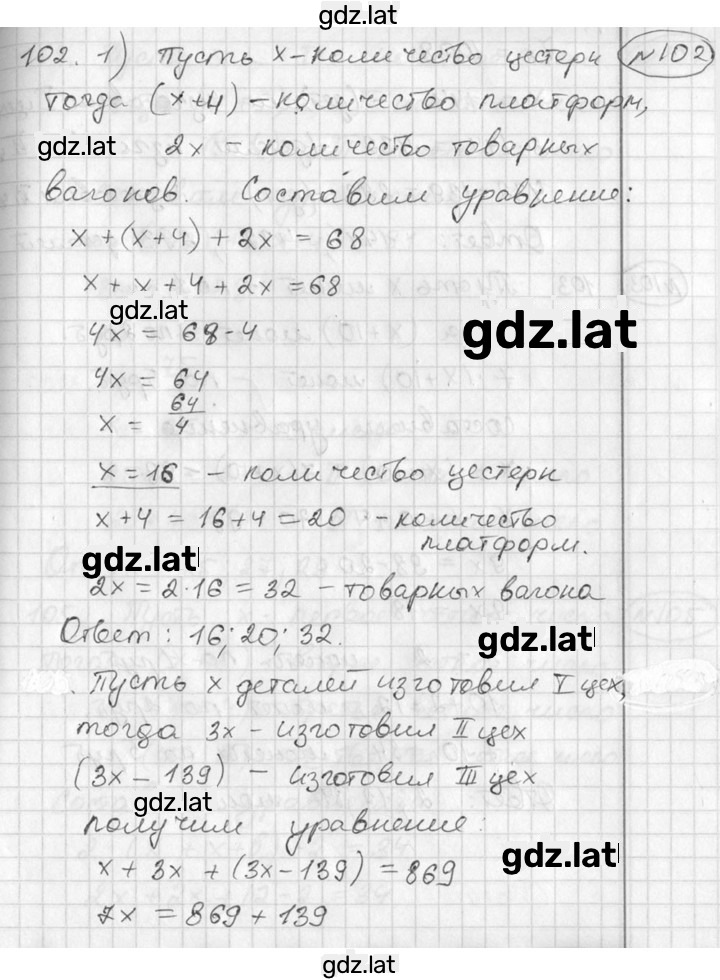 gdz.lat
102. 1) Пусть x - количество цестерн №102
тогда (x+4) - количество платформ,
gdz.lat
2x - количество товарных
вагонов. Составим уравнение:
x + (x+4) + 2x = 68
x + x + 4 + 2x = 68
gdz.lat
4x = 68-4
gdz.lat
4x = 64
x = 64/4
x = 16 - количество цестерн
x+4 = 16+4 = 20 - количество
платформ.
gdz.lat
2x = 2·16 = 32 - товарных вагона
Ответ: 16; 20; 32.
gdz.lat
Пусть x деталей изготовил I цех,
тогда 3x - изготовил II цех
(3x - 139) - изготовил III цех
gdz.lat
получим уравнение:
gdz.lat
x + 3x + (3x - 139) = 869
7x = 869 + 139
gdz.lat